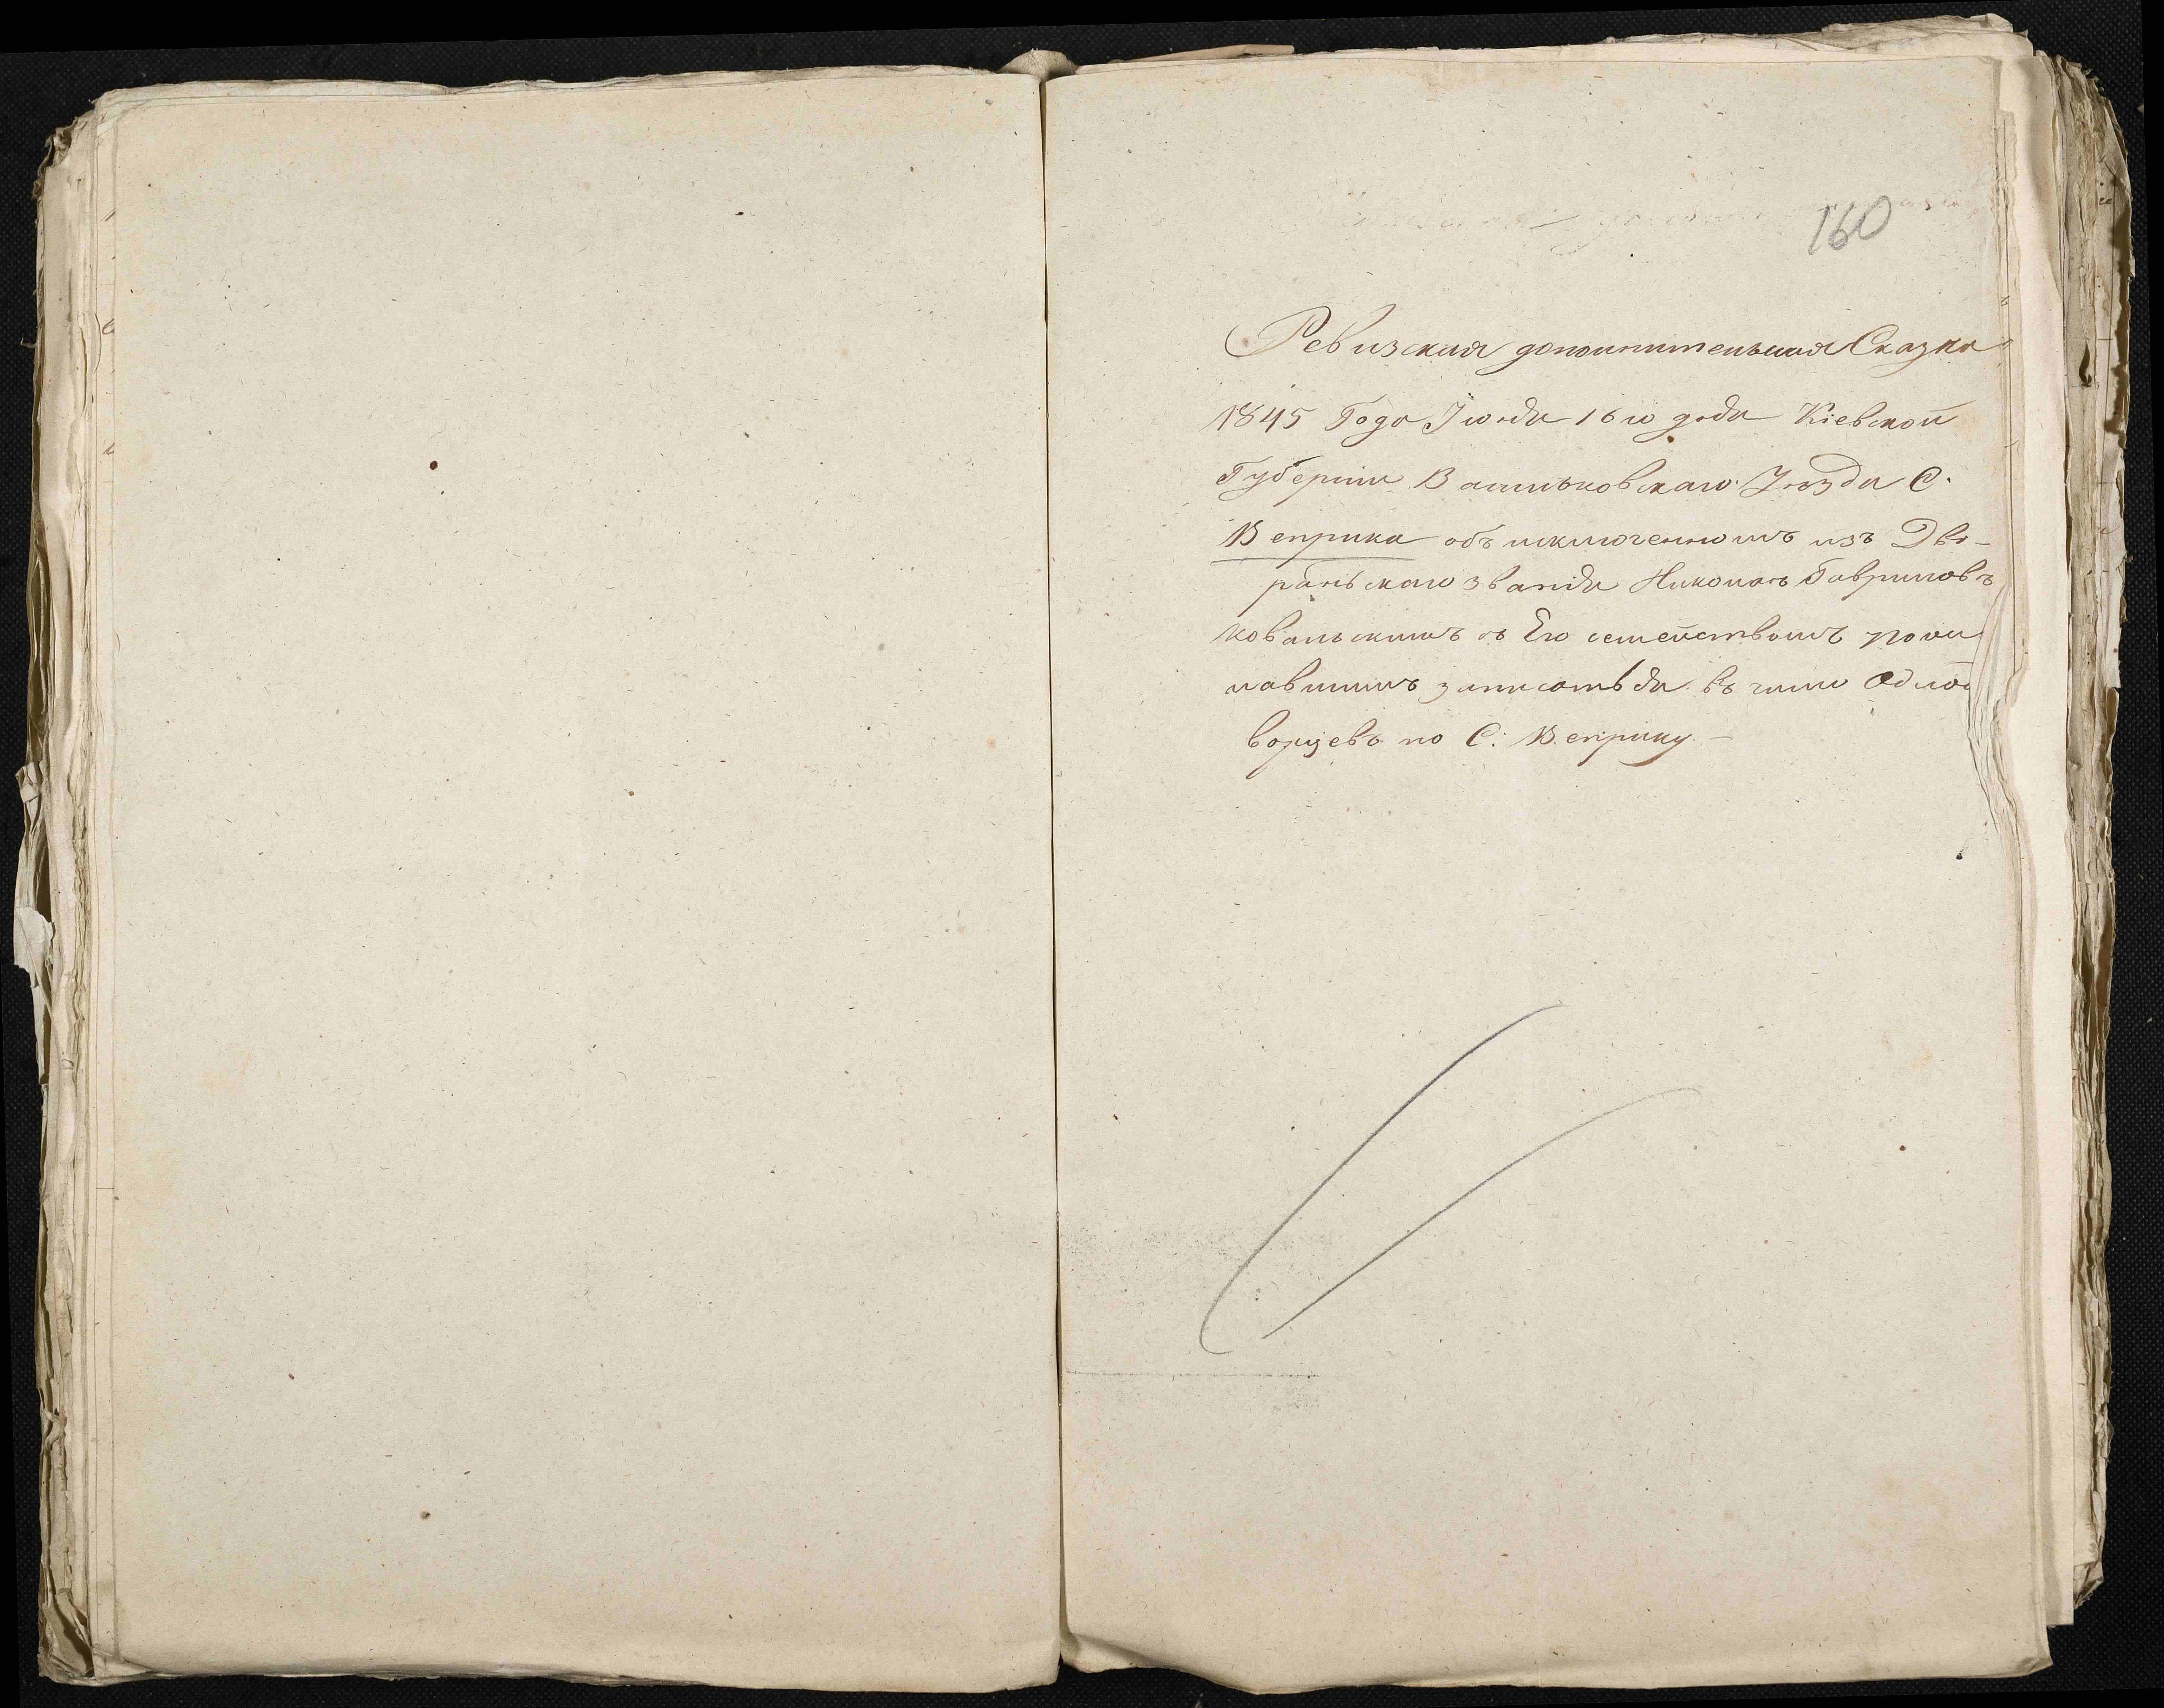 160
Ревизская дополнительная Сказка
1845 Года Іюня 16го дня Кіевской
Губерніи Васильковскаго Уѣзда С.
Веприка объ исключенномъ изъ Дво-
рянскаго званія Николаѣ Гавриловѣ
ковальскимъ съ Его семействомъ поже
лавшимъ записаться въ число Одно
ворцевъ по С. Веприку.